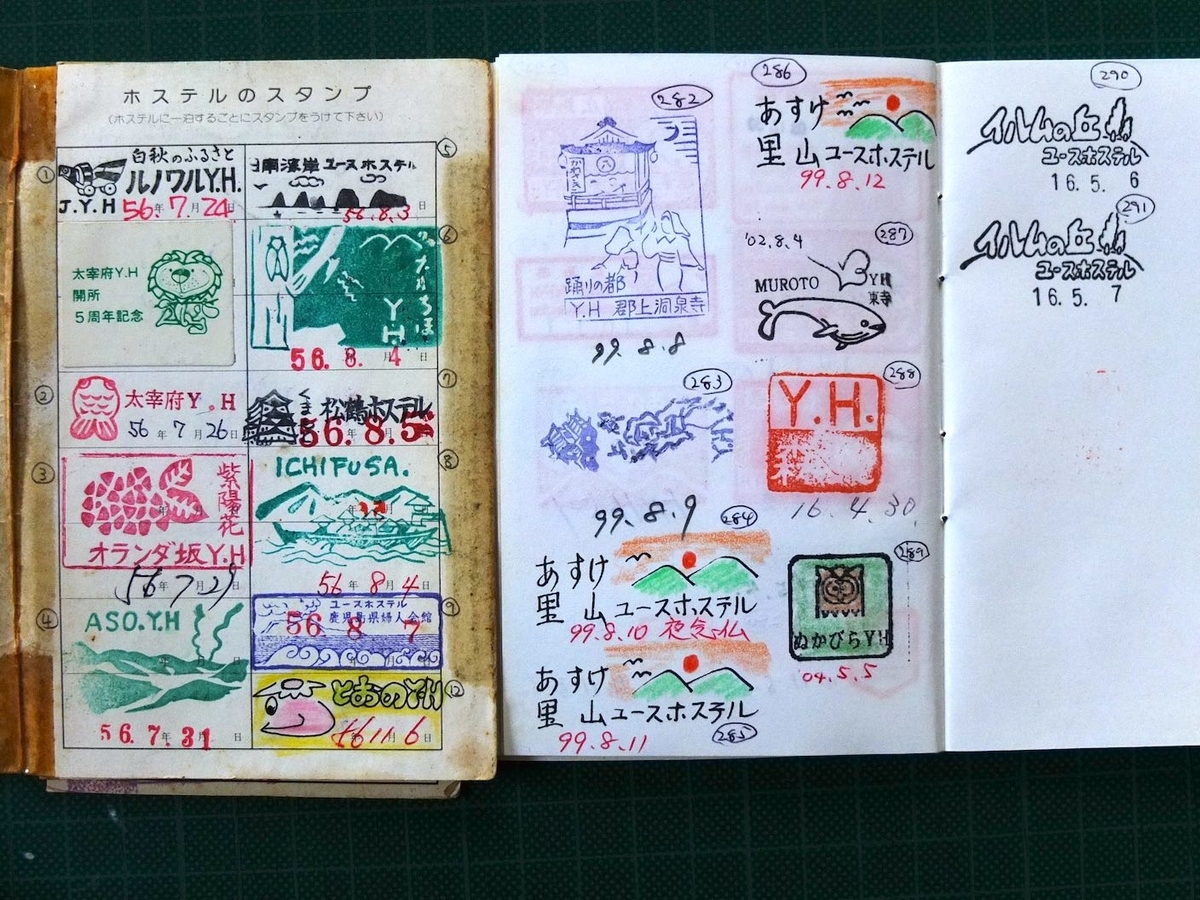 ホステルのスタンプ
(ホステルに一泊するごとにスタンプをうけて下さい)
①
白秋のふるさと
ルノワルY.H.
J.Y.H 56.年7月24日
太宰府Y.H
開所
5周年記念
②
太宰府Y.H
56年7月26日
③
紫陽花
オランダ坂Y.H
56年7月29日
④
ASO.Y.H
56.7.31
⑤
ユースホステル
56.8.3
⑥
Y
H.
56.8.4
⑦
くまもと
松鶴ホステル
56.8.5
⑧
ICHIFUSA.
56年8月4日
⑨
ユースホステル
鹿児島県婦人会館
56 8 7
⑫
とおのY.H
56 11 6
282
踊りの都
Y.H 郡上洞泉寺
99.8.8
283
99.8.9
284
あすけ
里山ユースホステル
99.8.10 夜念仏
あすけ
里山ユースホステル
99.8.11
285
286
あすけ
里山ユースホステル
99.8.12
'02.8.4
287
MUROTO
YH
東寺
288
Y.H.
16.4.30
289
ぬかびらYH
04.5.5
290
イルムの丘
ユースホステル
16.5. 6
291
イルムの丘
ユースホステル
16.5. 7